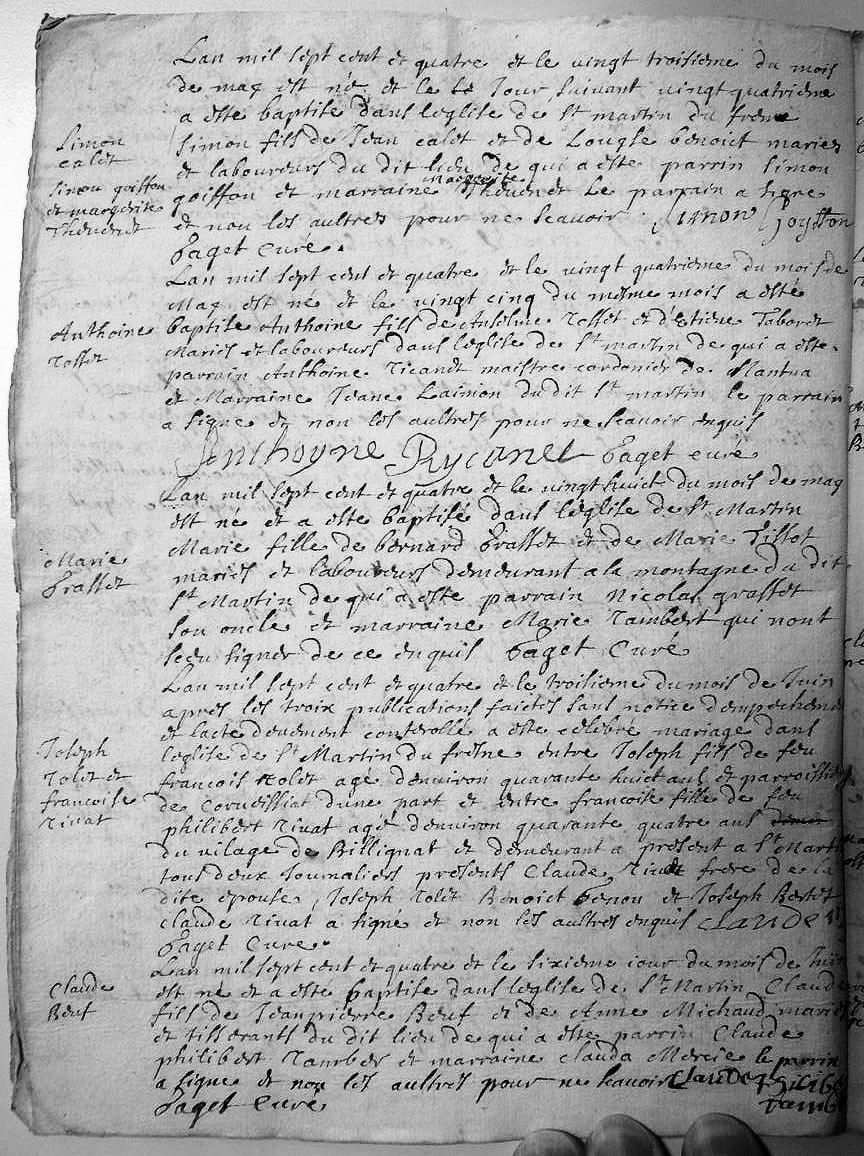 Lan mil sept cent et quatre et le vingt troisieme du mois
de may est né et le Jour suivant vingt quatrieme
a esté baptisé dans leglise de St martin du frene
Simon
calet
Simon fils de Jean calet et de benoict mariez
et laboureurs du dit lieu de qui a esté parrin Simon
Simon goiffon
et margerite
Thevenet
margerite
goiffon et marraine Thevenet Le parrain a signe
et non les aultres pour ne scavoir Simon Goyffon
Paget Curé.
Lan mil sept cent et quatre et le vingt quatrieme du mois de
May est né et le vingt cinq du mesme mois a esté
Anthoine
Tosset
baptisé Anthoine fils de Anselme Tosset et destiene Taboret
Mariés et laboureurs dans leglise de St martin de qui a esté
parrain Anthoine Ricanet maistre cordonier de Nantua
et Marraine Jeane du dit St martin le parrain
a signe et non les aultres pour ne scavoir enquis
Anthoyne Rycanet Paget curé
Lan mil sept cent et quatre et le vingt huict du mois de may
est né et a esté baptisé dans leglise de St Martin
Marie
Grasset
Marie fille de bernard Grasset et de Marie Tissot
mariés et laboureurs demeurant a la montagne du dit
St Martin de qui a esté parrain Nicolas grasset
son oncle et marraine Marie Tambert qui nont
sceu signer de ce enquis Paget Curé
Lan mil sept cent et quatre et le troisieme du mois de Juin
apres les troix publications faictes sans notice dempechement
et lacte deuement controllé a esté celebré mariage dans
Joseph
Rolet et
francoise
Rivat
leglise de St Martin du fresne entre Joseph fils de feu
francois Rolet agé denviron quarante huict ans et parroissien
de Corveissiat dune part et entre francoise fille de feu
philibert Rivat agé denviron quarante quatre ans
du vilage de Billignat et demeurant a present a St Martin
tous deux Journaliers presents Claude Rivat frere de la
dite epouse, Joseph Rolet Benoict et Joseph Bertet
claude Rivat a signé et non les aultres enquis CLAUDE
Paget Curé.
Lan mil sept cent et quatre et le sixieme iour du mois de Juin
Claude
Beuf
est né et a esté baptisé dans leglise de St Martin Claude
fils de Jeanpierre Beuf et de Anne Michaud mariés
et tisserants du dit lieu de qui a esté parrin Claude
philibert Tambert et marraine clauda Mercie le parrin
a signe et non les aultres pour ne scavoir Claude
Paget Curé